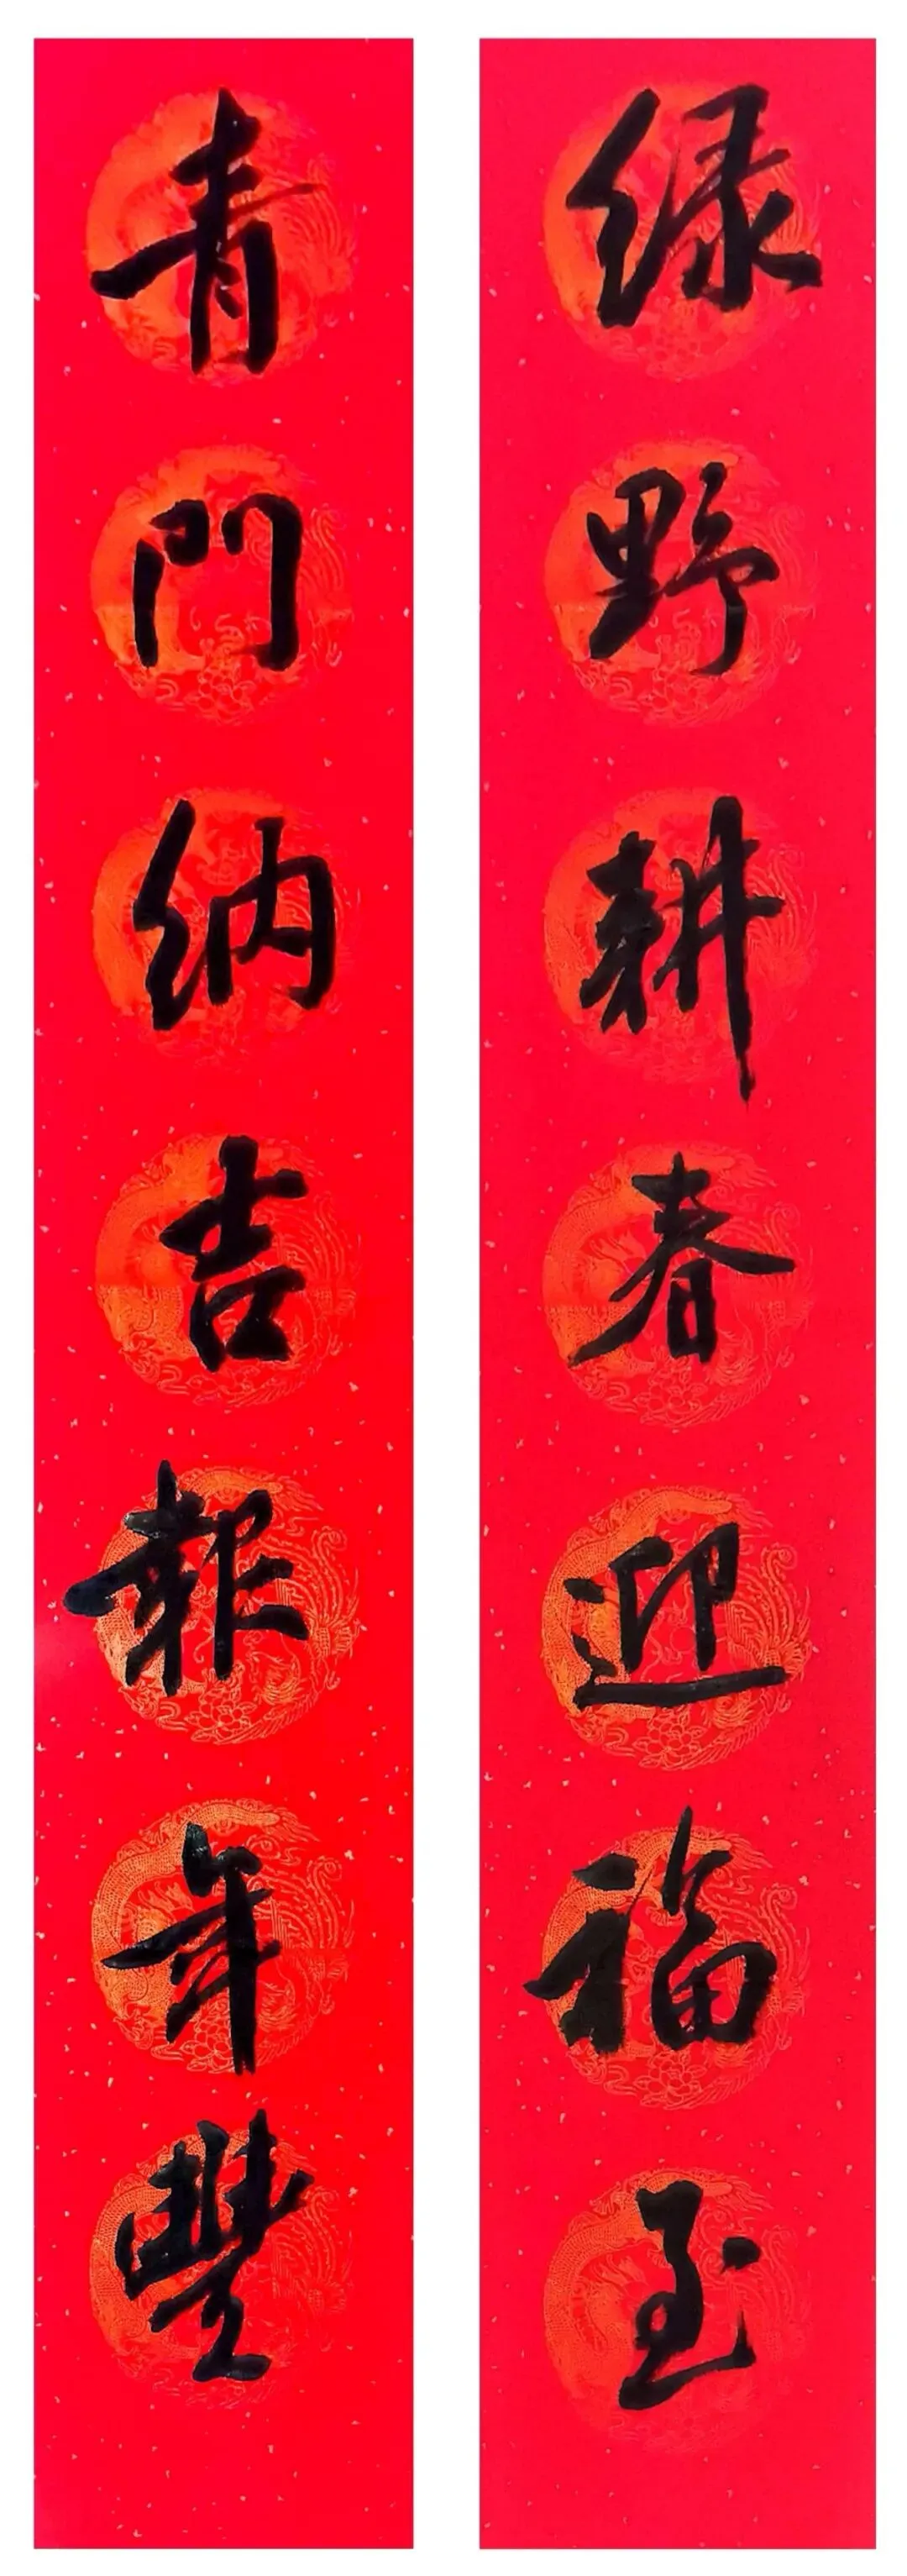 绿野耕春迎福至
青門纳吉報年豐